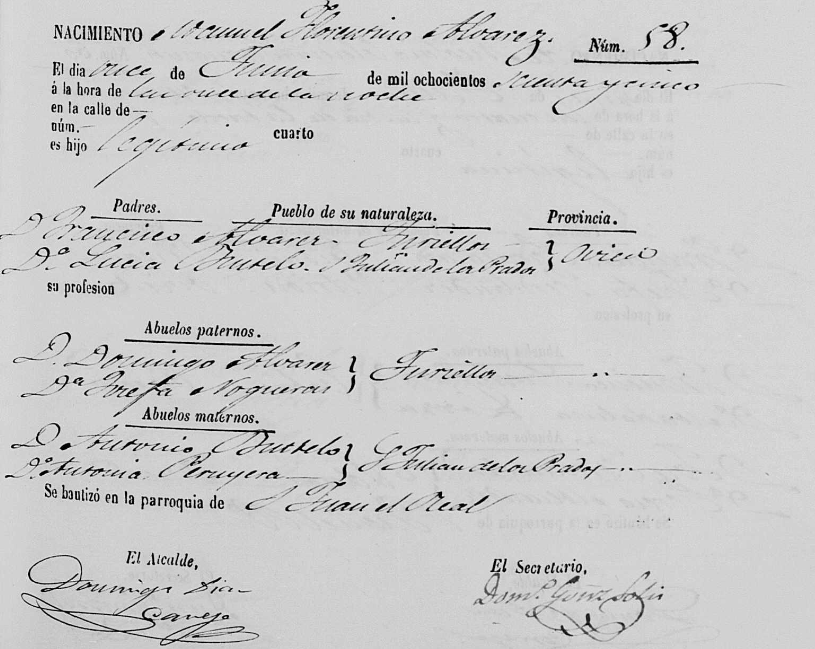 NACIMIENTO Manuel Florentino Alvarez. Núm. 58.
El dia once de Junio de mil ochocientos sesenta y cinco
á la hora de las once de la noche
en la calle de —
núm. — cuarto
es hijo legitimo
Padres. Pueblo de su naturaleza. Provincia.
Dn Francisco Alvarez - Turiellos } Oviedo
Da. Lucia Bustelo - S Julian de los Prados
su profesion
Abuelos paternos.
D. Domingo Alvarez } Turiellos — "
Da Josefa Nogueras
Abuelos maternos.
D Antonio Bustelo } S Julian de los Prados — "
Da. Antonia Peruyera
Se bautizó en la parroquia de S Juan el Real
El Alcalde, El Secretario,
Domingo Diaz Domo. Gonz Solis
Canejo